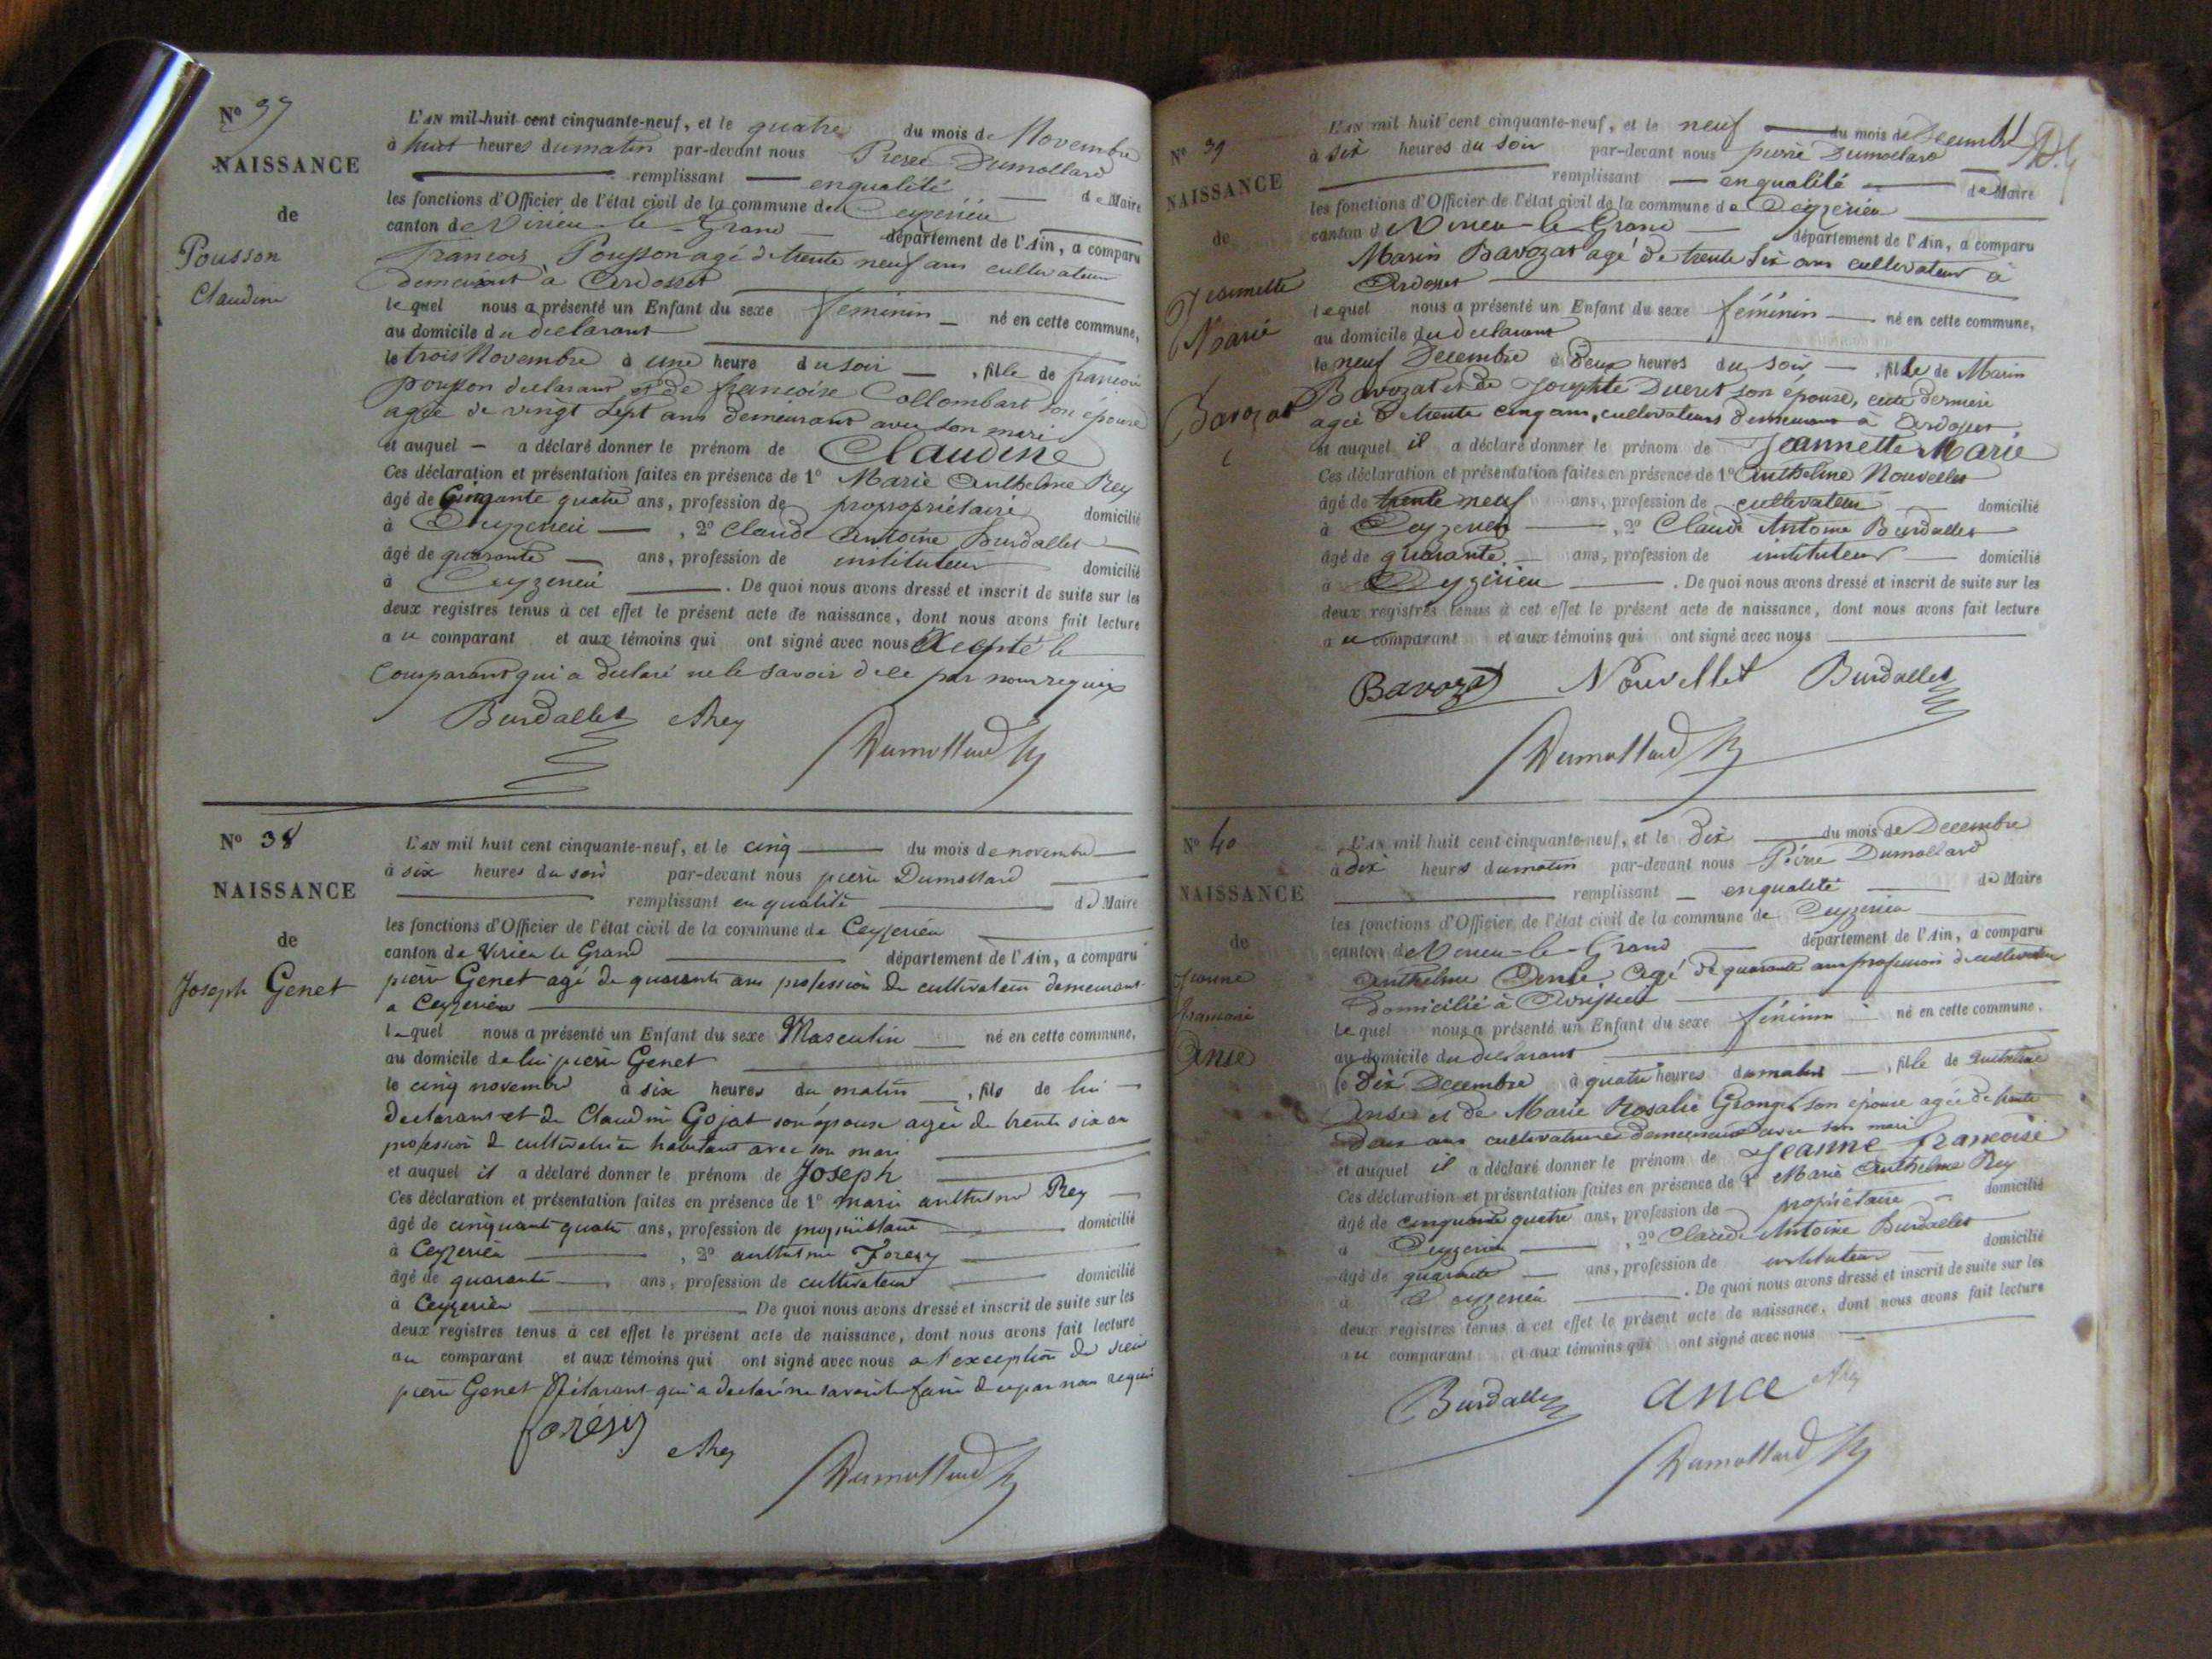 Nº 37
NAISSANCE
de
Pousson
Claudine
L'AN mil-huit cent cinquante-neuf, et le quatre du mois de Novembre
à huit heures du matin par-devant nous Pierre Dumollard
remplissant en qualité de Maire
les fonctions d'Officier de l'état civil de la commune de Ceyzerieu
canton de Virieu-le-Grand département de l'Ain, a comparu
Francois Pousson agé de trente neuf ans cultivateur
demeurant à Ardosset
lequel nous a présenté un Enfant du sexe feminin né en cette commune,
au domicile du declarant
le trois Novembre à une heure du soir , fille de francois
pousson declarant et de francoise Collombart son épouse
agée de vingt sept ans demeurant avec son mari
et auquel a déclaré donner le prénom de Claudine
Ces déclaration et présentation faites en présence de 1º Marie Anthelme Rey
âgé de Cinquante quatre ans, profession de propropriétaire domicilié
à Ceyzerieu , 2º Claude Antoine Burdallet
âgé de quarante ans, profession de instituteur domicilié
à Ceyzerieu . De quoi nous avons dressé et inscrit de suite sur les
deux registres tenus à cet effet le présent acte de naissance, dont nous avons fait lecture
au comparant et aux témoins qui ont signé avec nous Excepté le
Comparant qui a declaré ne le savoir de ce par nous requis
Burdallet Rey
Dumollard
Nº 38
NAISSANCE
de
Joseph Genet
L'AN mil huit cent cinquante-neuf, et le cinq du mois de novembre
à six heures du soir par-devant nous pierre Dumollard
remplissant en qualité de Maire
les fonctions d'Officier de l'état civil de la commune de Ceyzerieu
canton de Virieu le Grand département de l'Ain, a comparu
pierre Genet agé de quarante ans profession de cultivateur demeurant
a Ceyzerieu
lequel nous a présenté un Enfant du sexe Masculin né en cette commune,
au domicile de lui pierre Genet
le cinq novembre à six heures du matin , fils de lui
declarant et de Claudine Gojat son épouse agée de trente six ans
profession de cultivatrice habitant avec son mari
et auquel il a déclaré donner le prénom de Joseph
Ces déclaration et présentation faites en présence de 1º marie anthelme Rey
âgé de cinquante quatre ans, profession de propriétaire domicilié
à Ceyzerieu , 2º anthelme Foresy
âgé de quarante ans, profession de cultivateur domicilié
à Ceyzerieu De quoi nous avons dressé et inscrit de suite sur les
deux registres tenus à cet effet le présent acte de naissance, dont nous avons fait lecture
au comparant et aux témoins qui ont signé avec nous a l'exception du sieur
pierre Genet déclarant qui a declaré ne savoir le faire de ce par nous requis
Rey
Dumollard
Nº 39
NAISSANCE
de
Jeannette
Marie
Bavozat
L'AN mil huit cent cinquante-neuf, et le neuf du mois de Decembre
à six heures du soir par-devant nous pierre Dumollard
remplissant en qualité de Maire
les fonctions d'Officier de l'état civil de la commune de Ceyzerieu
canton de Virieu-le-Grand département de l'Ain, a comparu
Marin Bavozat agé de trente six ans cultivateur à
Ardosset
lequel nous a présenté un Enfant du sexe féminin né en cette commune,
au domicile du declarant
le neuf Decembre à deux heures du soir , fille de Marin
Bavozat et de Josephte Ducret son épouse, cette derniere
agée de trente cinq ans, cultivateurs demeurant à Ardosset
et auquel il a déclaré donner le prénom de Jeannette Marie
Ces déclaration et présentation faites en présence de 1º Anthelme Nouvellet
âgé de trente neuf ans, profession de cultivateur domicilié
à Ceyzerieu , 2º Claude Antoine Burdallet
âgé de quarante ans, profession de instituteur domicilié
à Ceyzerieu . De quoi nous avons dressé et inscrit de suite sur les
deux registres tenus à cet effet le présent acte de naissance, dont nous avons fait lecture
au comparant et aux témoins qui ont signé avec nous
Bavozat Nouvellet Burdallet
Dumollard
Nº 40
NAISSANCE
de
Jeanne
francoise
Anse
L'AN mil huit cent cinquante-neuf, et le dix du mois de Decembre
à dix heures du matin par-devant nous Pierre Dumollard
remplissant en qualité de Maire
les fonctions d'Officier de l'état civil de la commune de Ceyzerieu
canton de Virieu-le-Grand département de l'Ain, a comparu
Anthelme Anse agé de quarante ans profession de cultivateur
domicilié à
lequel nous a présenté un Enfant du sexe féminin né en cette commune,
au domicile du declarant
le Dix Decembre à quatre heures du matin , fille de Anthelme
Anse et de Marie Rosalie Granget son épouse agée de trente
deux ans cultivatrice demeurant avec son mari
et auquel il a déclaré donner le prénom de Jeanne francoise
Ces déclaration et présentation faites en présence de 1º Marie Anthelme Rey
âgé de cinquante quatre ans, profession de propriétaire domicilié
à Ceyzerieu , 2º Claude Antoine Burdallet
âgé de quarante ans, profession de instituteur domicilié
à Ceyzerieu . De quoi nous avons dressé et inscrit de suite sur les
deux registres tenus à cet effet le présent acte de naissance, dont nous avons fait lecture
au comparant et aux témoins qui ont signé avec nous
Burdallet ance Rey
Dumollard